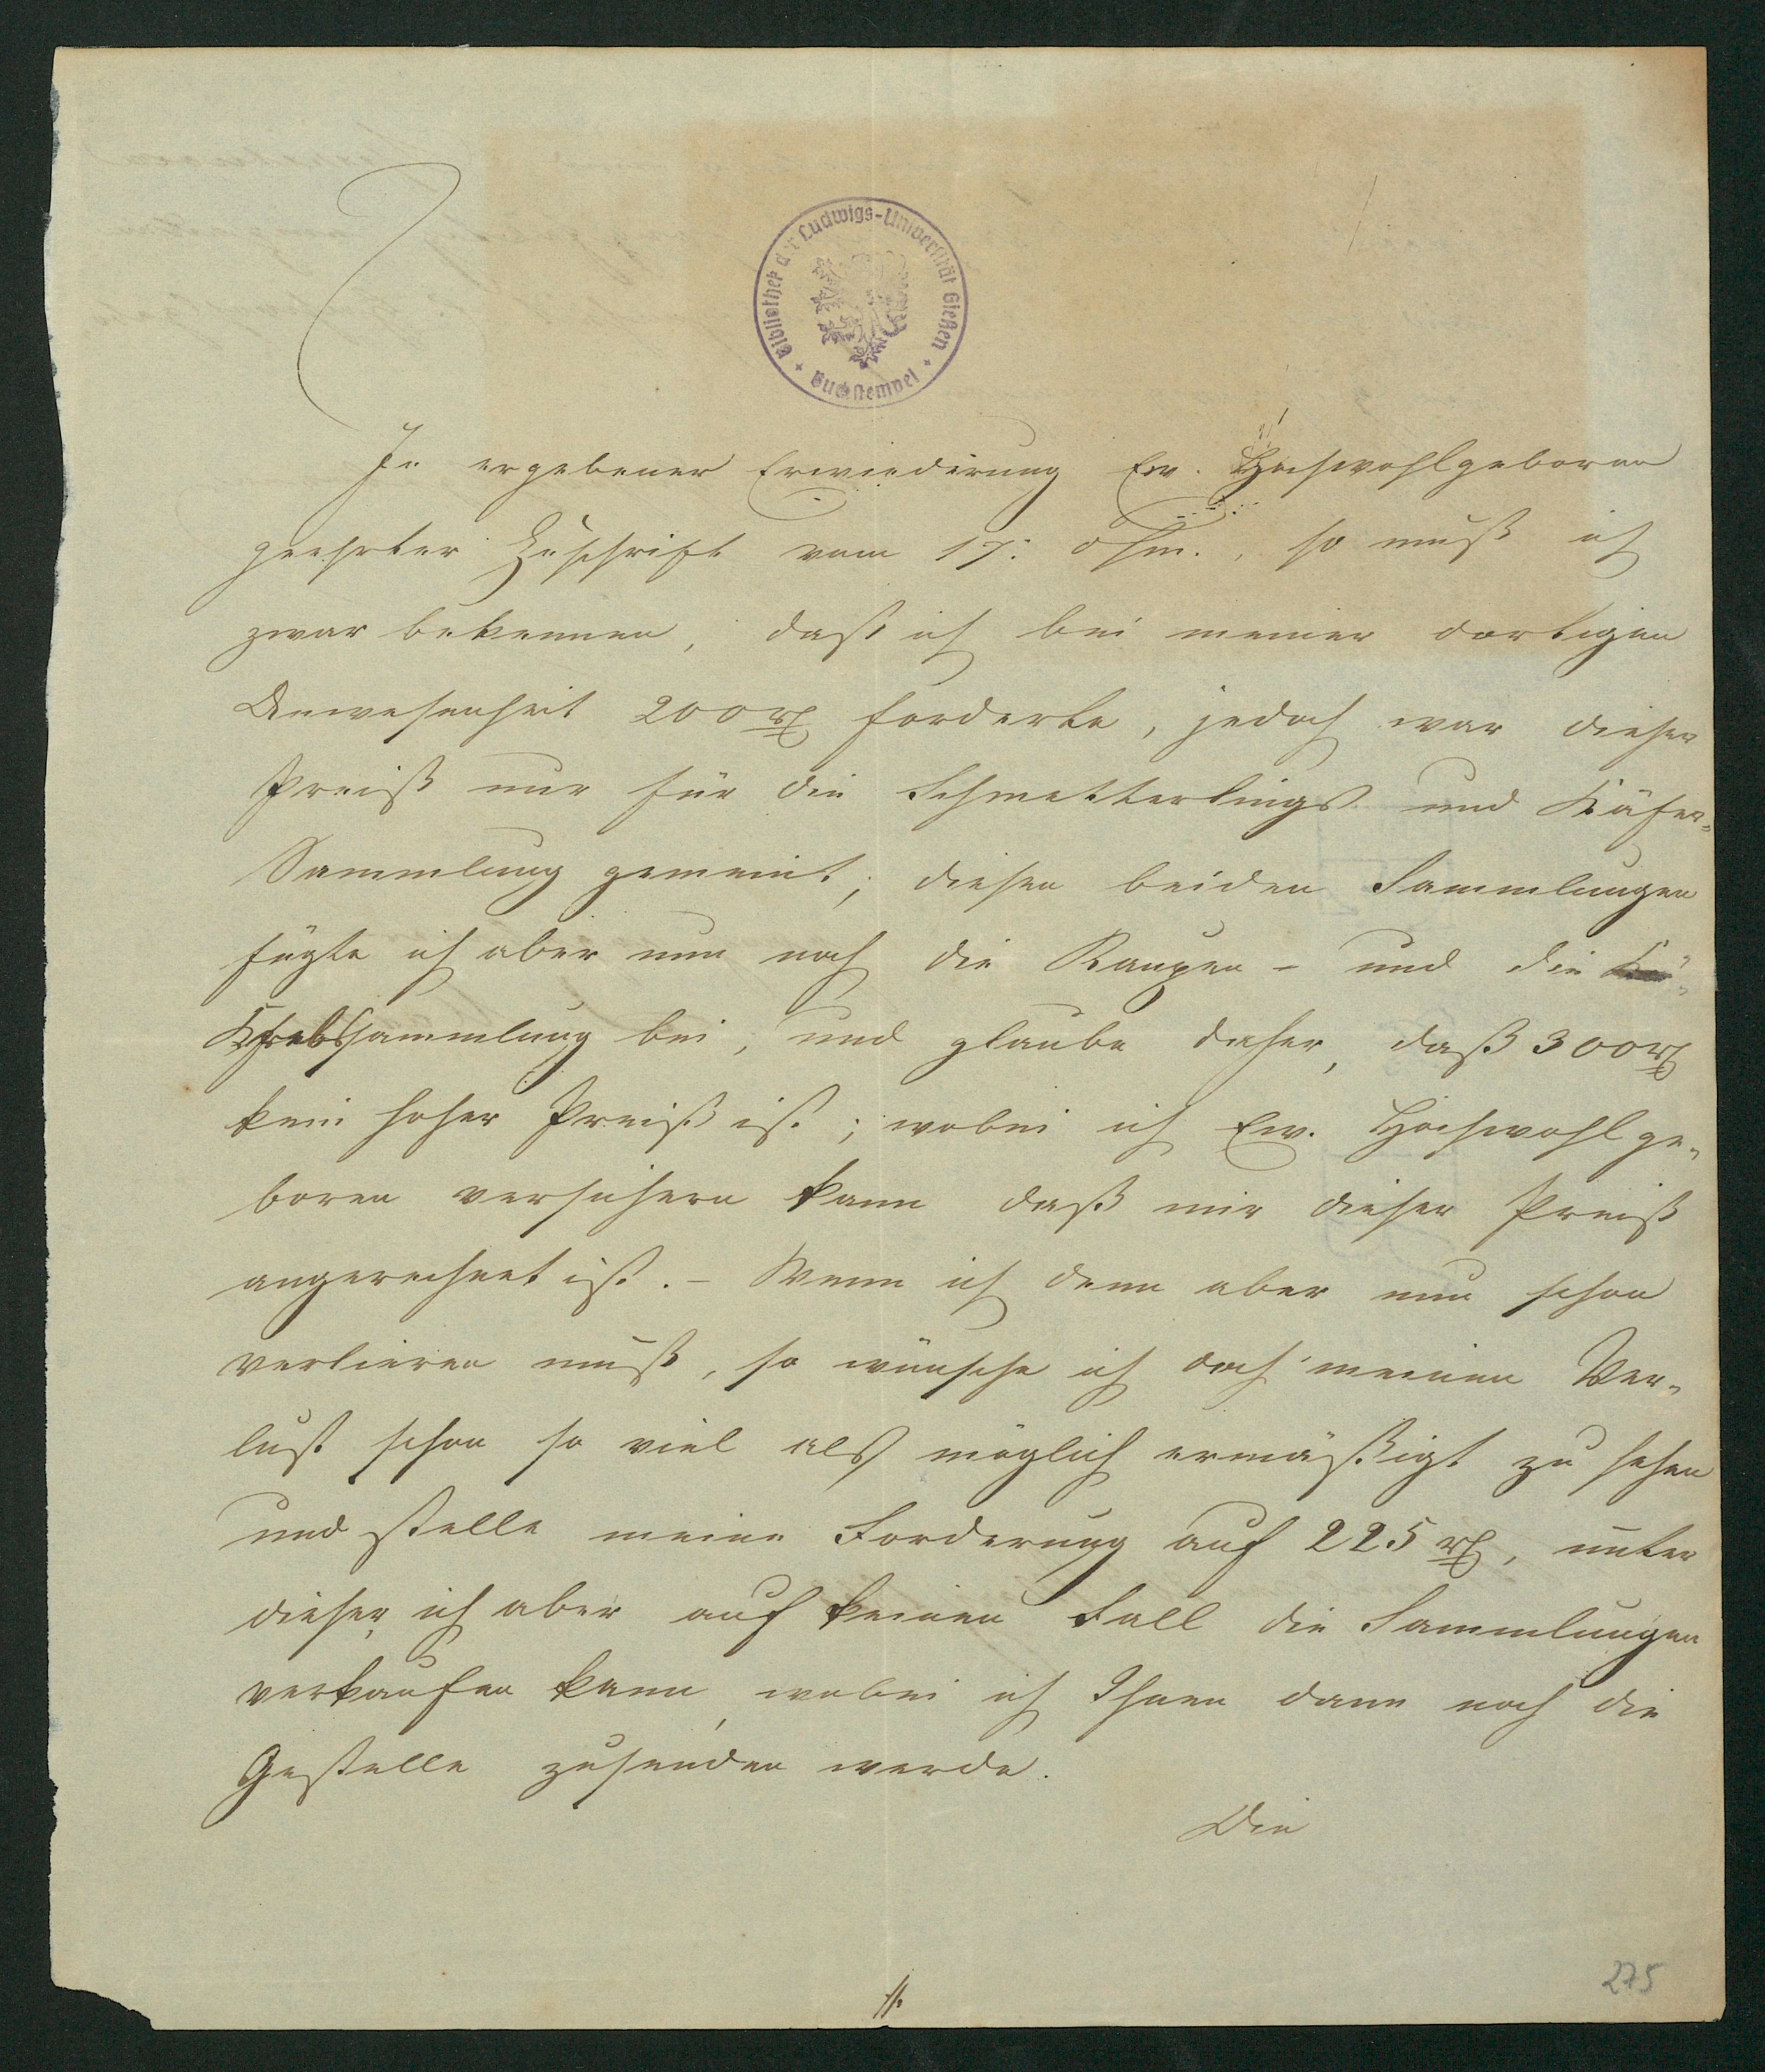 Bibliothek der Ludwigs-Universität Gießen
Buchstempel
In ergebener Erwiederung Ew. Hochwohlgeboren
geehrter Zuschrift vom 17. , so muß ich
zwar bekennen, daß ich bei meiner dortigen
Anwesenheit 200 rth forderte, jedoch war dieser
Preiß nur für die Schmetterlings und Käfer-
Sammlung gemeint; diesen beiden Sammlungen
fügte ich aber nun noch die Raupen - und die
Krebssammlung bei, und glaube daher, daß 300 rth
kein hoher Preiß ist; wobei ich Ew. Hochwohlge-
boren versichern kann daß mir dieser Preiß
angerechnet ist. - Wenn ich denn aber nun schon
verlieren muß, so wünsche ich doch meinen Ver-
lust schon so viel als möglich ermäßigt zu sehen
und stelle meine Forderung auf 225 rth, unter
dieser ich aber auf keinen Fall die Sammlungen
verkaufen kann, wobei ich Ihnen dann noch die
Gestelle zusenden werde.
Die
275